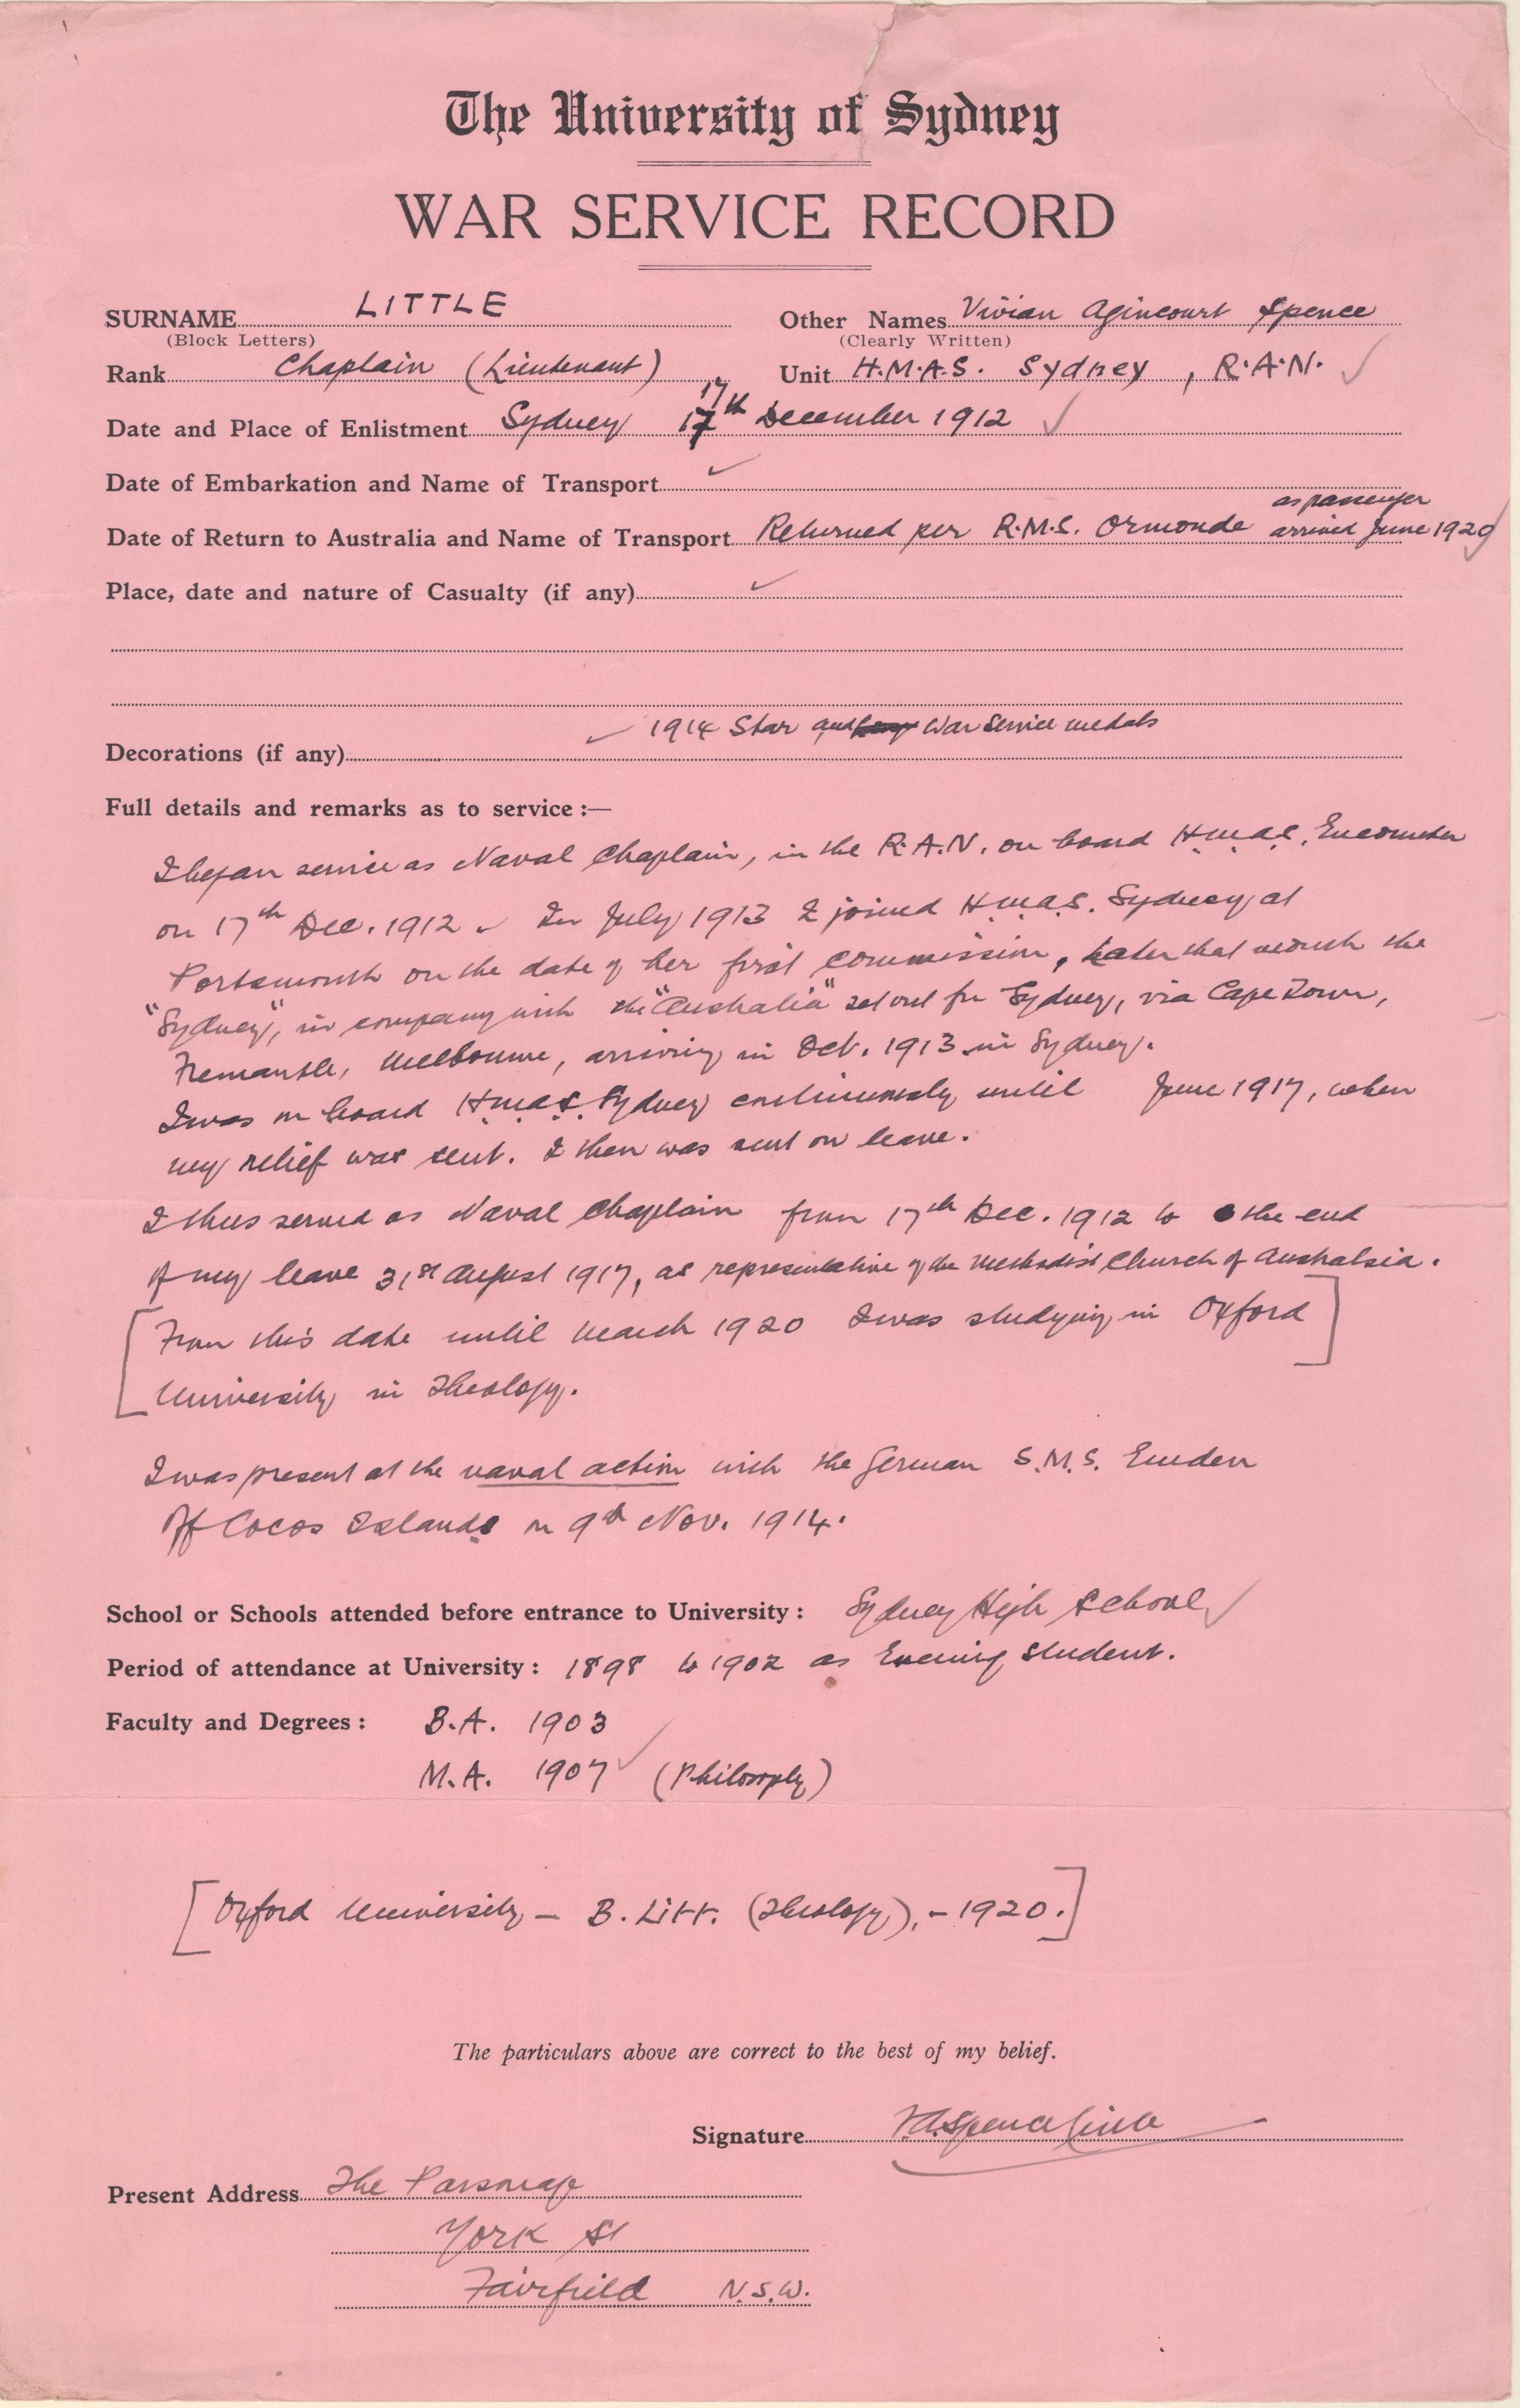 The University of Sydney
WAR SERVICE RECORD
SURNAME LITTLE Other Names Vivian Agincourt Spence
(Block Letters) (Clearly Written)
Rank Chaplain (Lieutenant) Unit H.M.A.S. Sydney, R.A.N.
17
Date and Place of Enlistment Sydney 17th December 1912
Date of Embarkation and Name of Transport
as passenger
Date of Return to Australia and Name of Transport Returned per R.M.S. Ormonde arrived June 1920
Place, date and nature of Casualty (if any)
1914 Star and War Service medals
Decorations (if any)
Full details and remarks as to service :—
I began service as Naval Chaplain, in the R.A.N. on board H.M.A.S. Encounter
on 17th Dec. 1912. In July 1913 I joined H.M.A.S. Sydney at
Portsmouth on the date of her first commission, Later that month the
"Sydney", in company with the "Australia" set out for Sydney, via Cape Town,
Fremantle, Melbourne, arriving in Oct. 1913 in Sydney.
I was on board H.M.A.S. Sydney continuously until June 1917, when
my relief was sent. I then was sent on leave.
I thus served as Naval Chaplain from 17th Dec. 1912 to the end
of my leave 31st August 1917, as representative of the Methodist Church of Australsia.
[From this date until March 1920 I was studying in Oxford]
[University in Theology.
I was present at the naval action with the German S.M.S. Emden
off Cocos Islands on 9th Nov. 1914.
School or Schools attended before entrance to University : Sydney High School
Period of attendance at University : 1898 to 1902 as Evening student.
Faculty and Degrees : B.A. 1903
M.A. 1907 (Philosophy)
[Oxford University – B. Litt. (Theology), – 1920.]
The particulars above are correct to the best of my belief.
Signature V.A. Spence Little
Present Address The Parsonage
York St
Fairfield N.S.W.